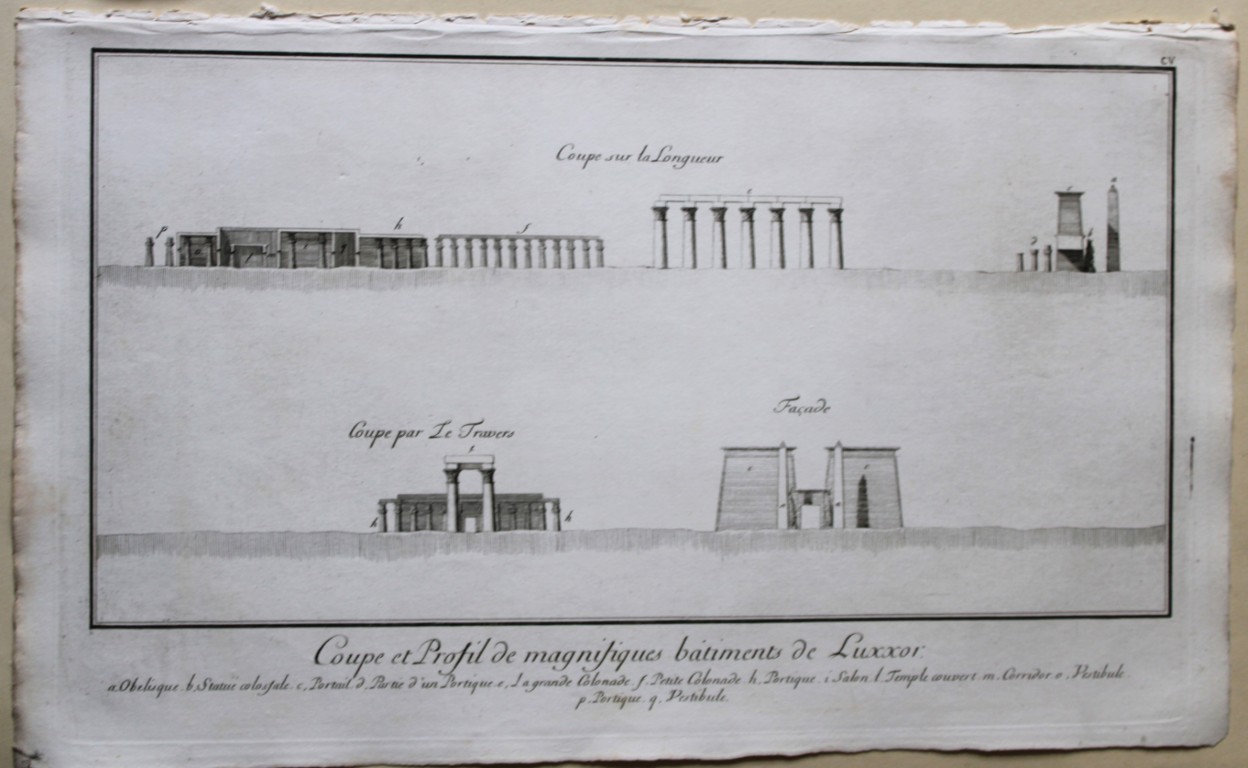 CV
Coupe sur la Longueur
p h f e c a
d
Coupe par Le Travers
Façade
h h
Coupe et Profil de magnifiques bâtiments de Luxxor.
a. Obelisque. b, Statuë colossale. c, Portail. d, Partie d'un Portique. e, La grande Colonade. f, Petite Colonade. h, Portique. i Salon. l. Temple couvert. m. Corridor. o, Vestibule.
p. Portique. q, Vestibule.